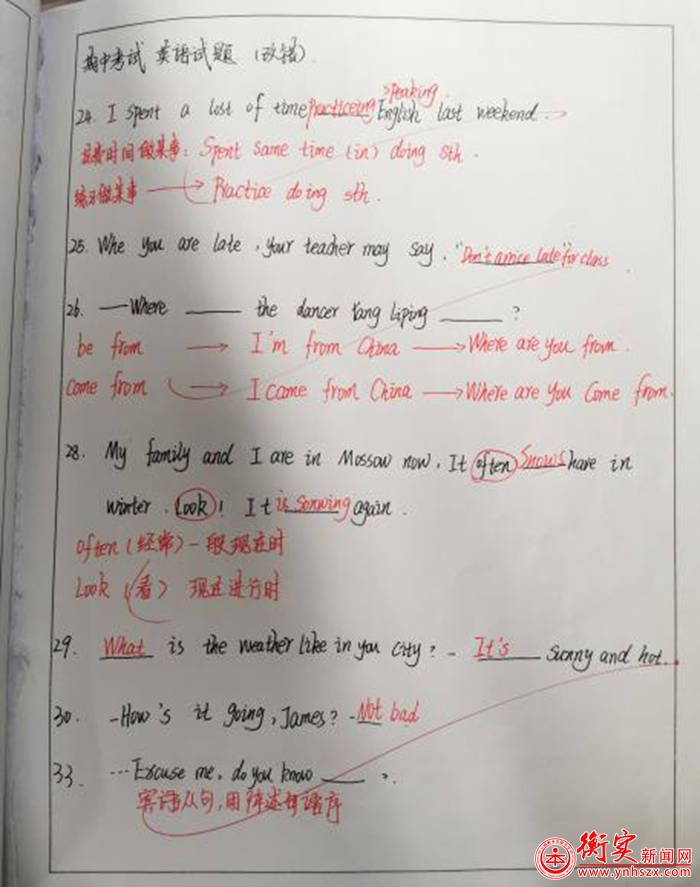 期中考试 英语试题 (改错).
speaking
24. I spent a lost of time practiceing English last weekend.
花费时间做某事: Spent same time (in) doing sth.
练习做某事 → Practice doing sth.
25. Whe you are late, your teacher may say, "Don't arrice late" for class
26. —Where ____ the dancer Yang Liping ____ ?
be from → I'm from China → Where are you from.
Come from → I came from China → Where are you Come from.
28. My family and I are in Mossow now, It often Snows have in
winter. Look! It is sonwing again.
often (经常) 一般现在时
Look (看) 现在进行时
29. What is the weather like in you city? - It's sunny and hot..
30. -How's it going, James? -Not bad
33. ...Excuse me, do you know ____ ?.
宾语从句, 用陈述句语序
衡实新闻网
www.ynhszx.com